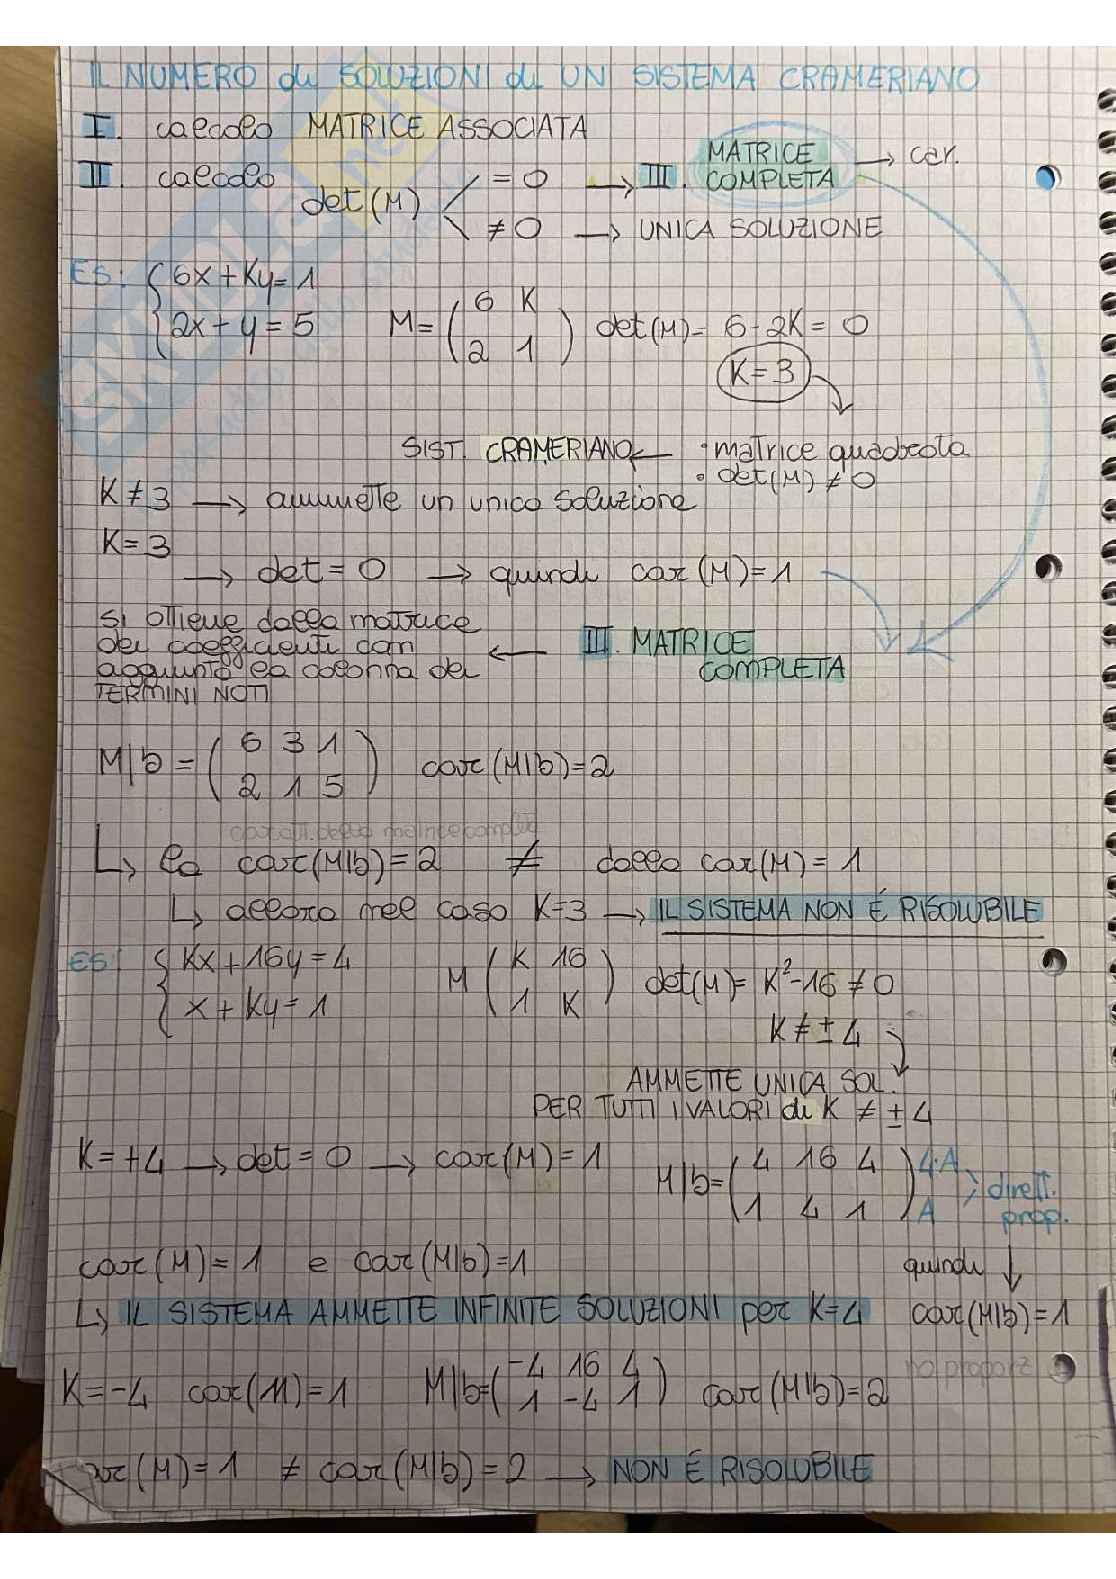 IL NUMERO di SOLUZIONI di UN SISTEMA CRAMERIANO
I. calcolo MATRICE ASSOCIATA
II. calcolo det(M) = 0 → III. MATRICE COMPLETA → car.
≠ 0 → UNICA SOLUZIONE
ES: { 6x + Ky = 1
2x + y = 5 M = ( 6 K
2 1 ) det(M) = 6 - 2K = 0
K = 3
SIST. CRAMERIANO ← • matrice quadrata
• det(M) ≠ 0
K ≠ 3 → ammette un unica soluzione
K = 3
→ det = 0 → quindi car(M) = 1
si ottiene dalla matrice
dei coefficienti con
aggiunto la colonna dei
TERMINI NOTI
← III. MATRICE
COMPLETA
M|b = ( 6 3 1
2 1 5 ) car(M|b) = 2
caratt. della matrice completa
↳ la car(M|b) = 2 ≠ dalla car(M) = 1
↳ allora nel caso K=3 → IL SISTEMA NON É RISOLUBILE
ES: { Kx + 16y = 4
x + Ky = 1 M ( K 16
1 K ) det(M) = K² - 16 ≠ 0
K ≠ ± 4
AMMETTE UNICA SOL.
PER TUTTI I VALORI di K ≠ ± 4
K = +4 → det = 0 → car(M) = 1
M|b = ( 4 16 4 ) 4·A
1 4 1 ) A
dirett.
prop.
car(M) = 1 e car(M|b) = 1
quindi ↓
↳ IL SISTEMA AMMETTE INFINITE SOLUZIONI per K=4 car(M|b) = 1
no proporz
K = -4 car(M) = 1 M|b = ( -4 16 4
1 -4 1 ) car(M|b) = 2
car(M) = 1 ≠ car(M|b) = 2 → NON É RISOLUBILE